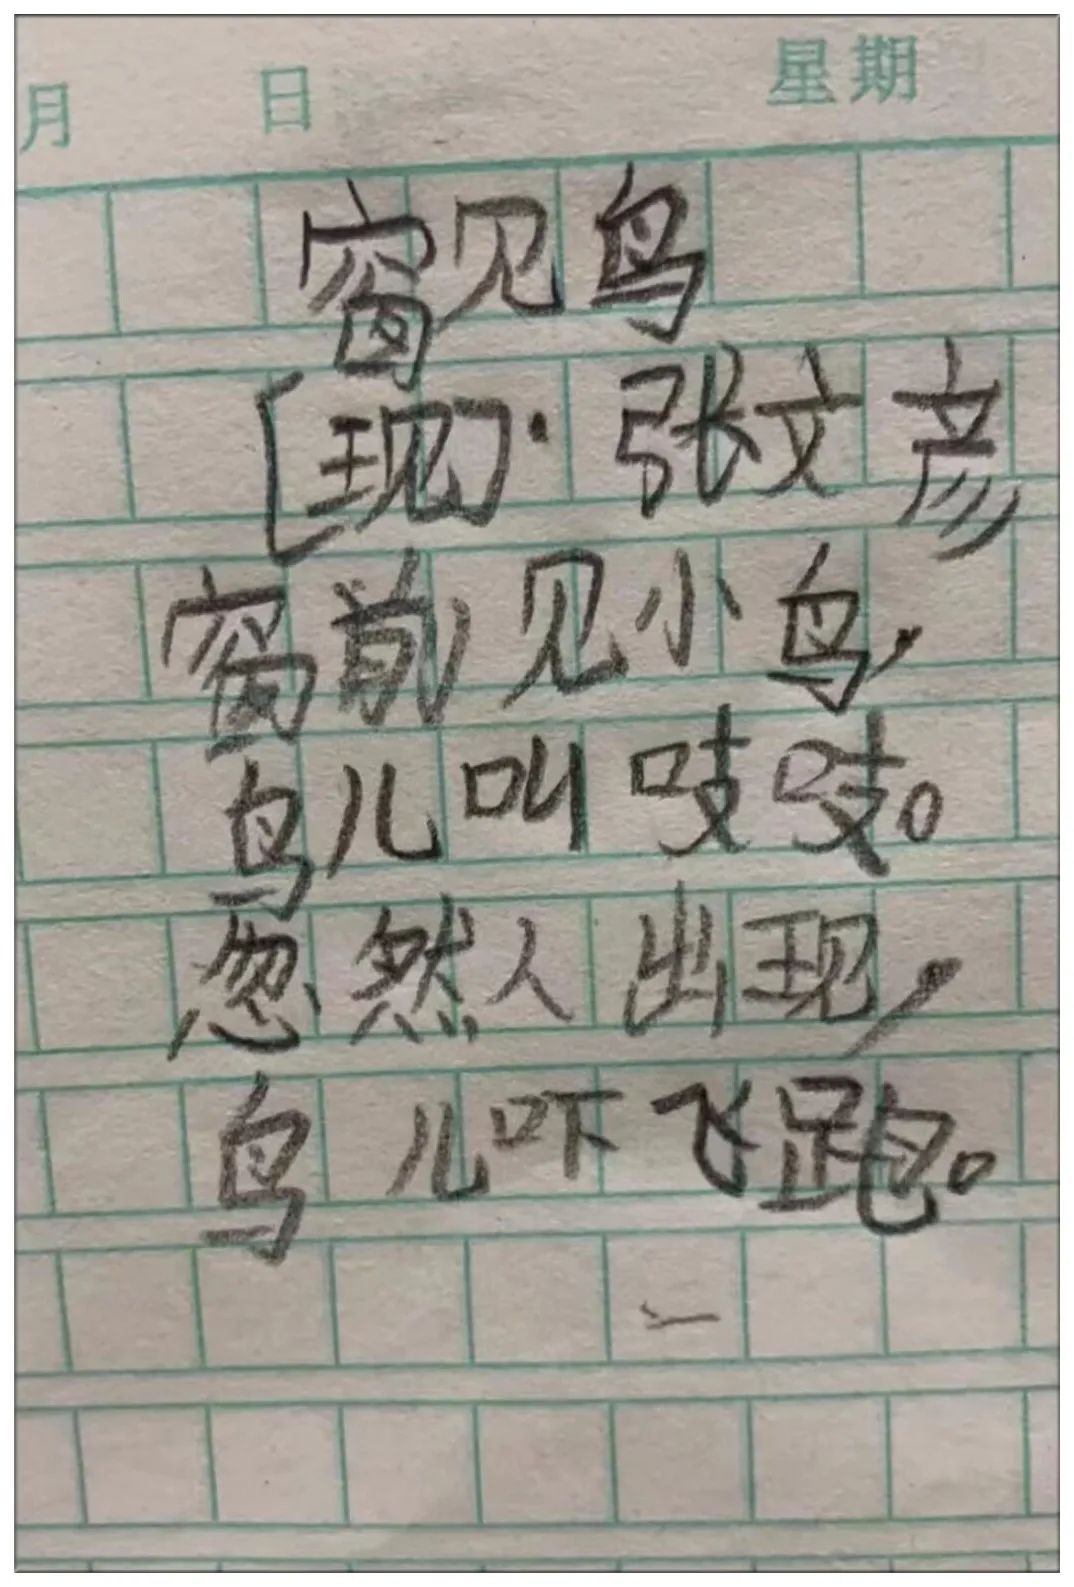 月 日 星期
窗见鸟
[现]·张文彦
窗前见小鸟,
鸟儿叫吱吱。
忽然人出现,
鸟儿吓飞跑。